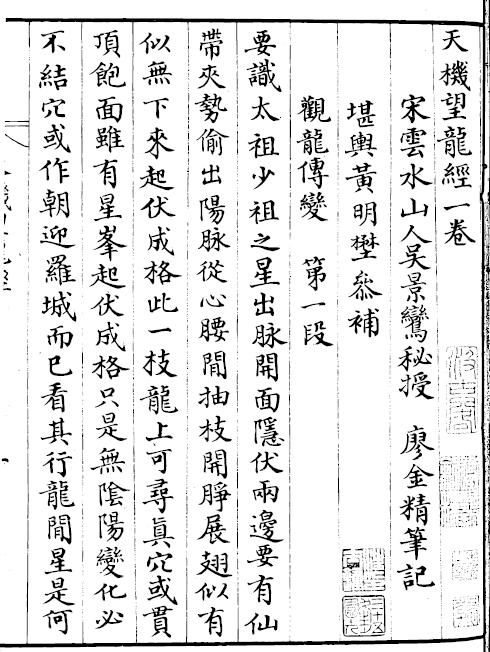 天機望龍經一卷
宋雲水山人吳景鸞秘授　廖金精筆記
堪輿黃明㙯叅補
觀龍傳變　第一段
要識太祖少祖之星出脉開面隱伏兩邊要有仙
帶夾勢偷出陽脉從心腰閒抽枝開睜展翅似有
似無下來起伏成格此一枝龍上可尋眞穴或貫
頂飽面雖有星峯起伏成格只是無陰陽變化必
不結穴或作朝迎羅城而已看其行龍閒星是何